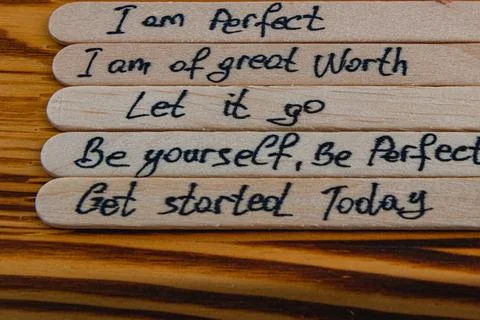 I am Perfect
I am of great Worth
Let it go
Be yourself, Be Perfect
Get started Today